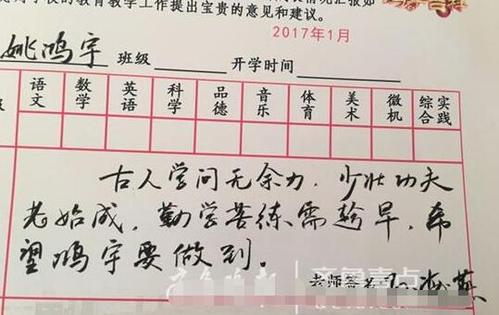 对学校的教育教学工作提出宝贵的意见和建议。
2017年1月
姚鸿宇 班级 开学时间
语文 数学 英语 科学 品德 音乐 体育 美术 微机 综合实践
古人学问无余力，少壮功夫
老始成，勤学苦练需趁早，希
望鸿宇要做到。
齐鲁壹点
老师签名